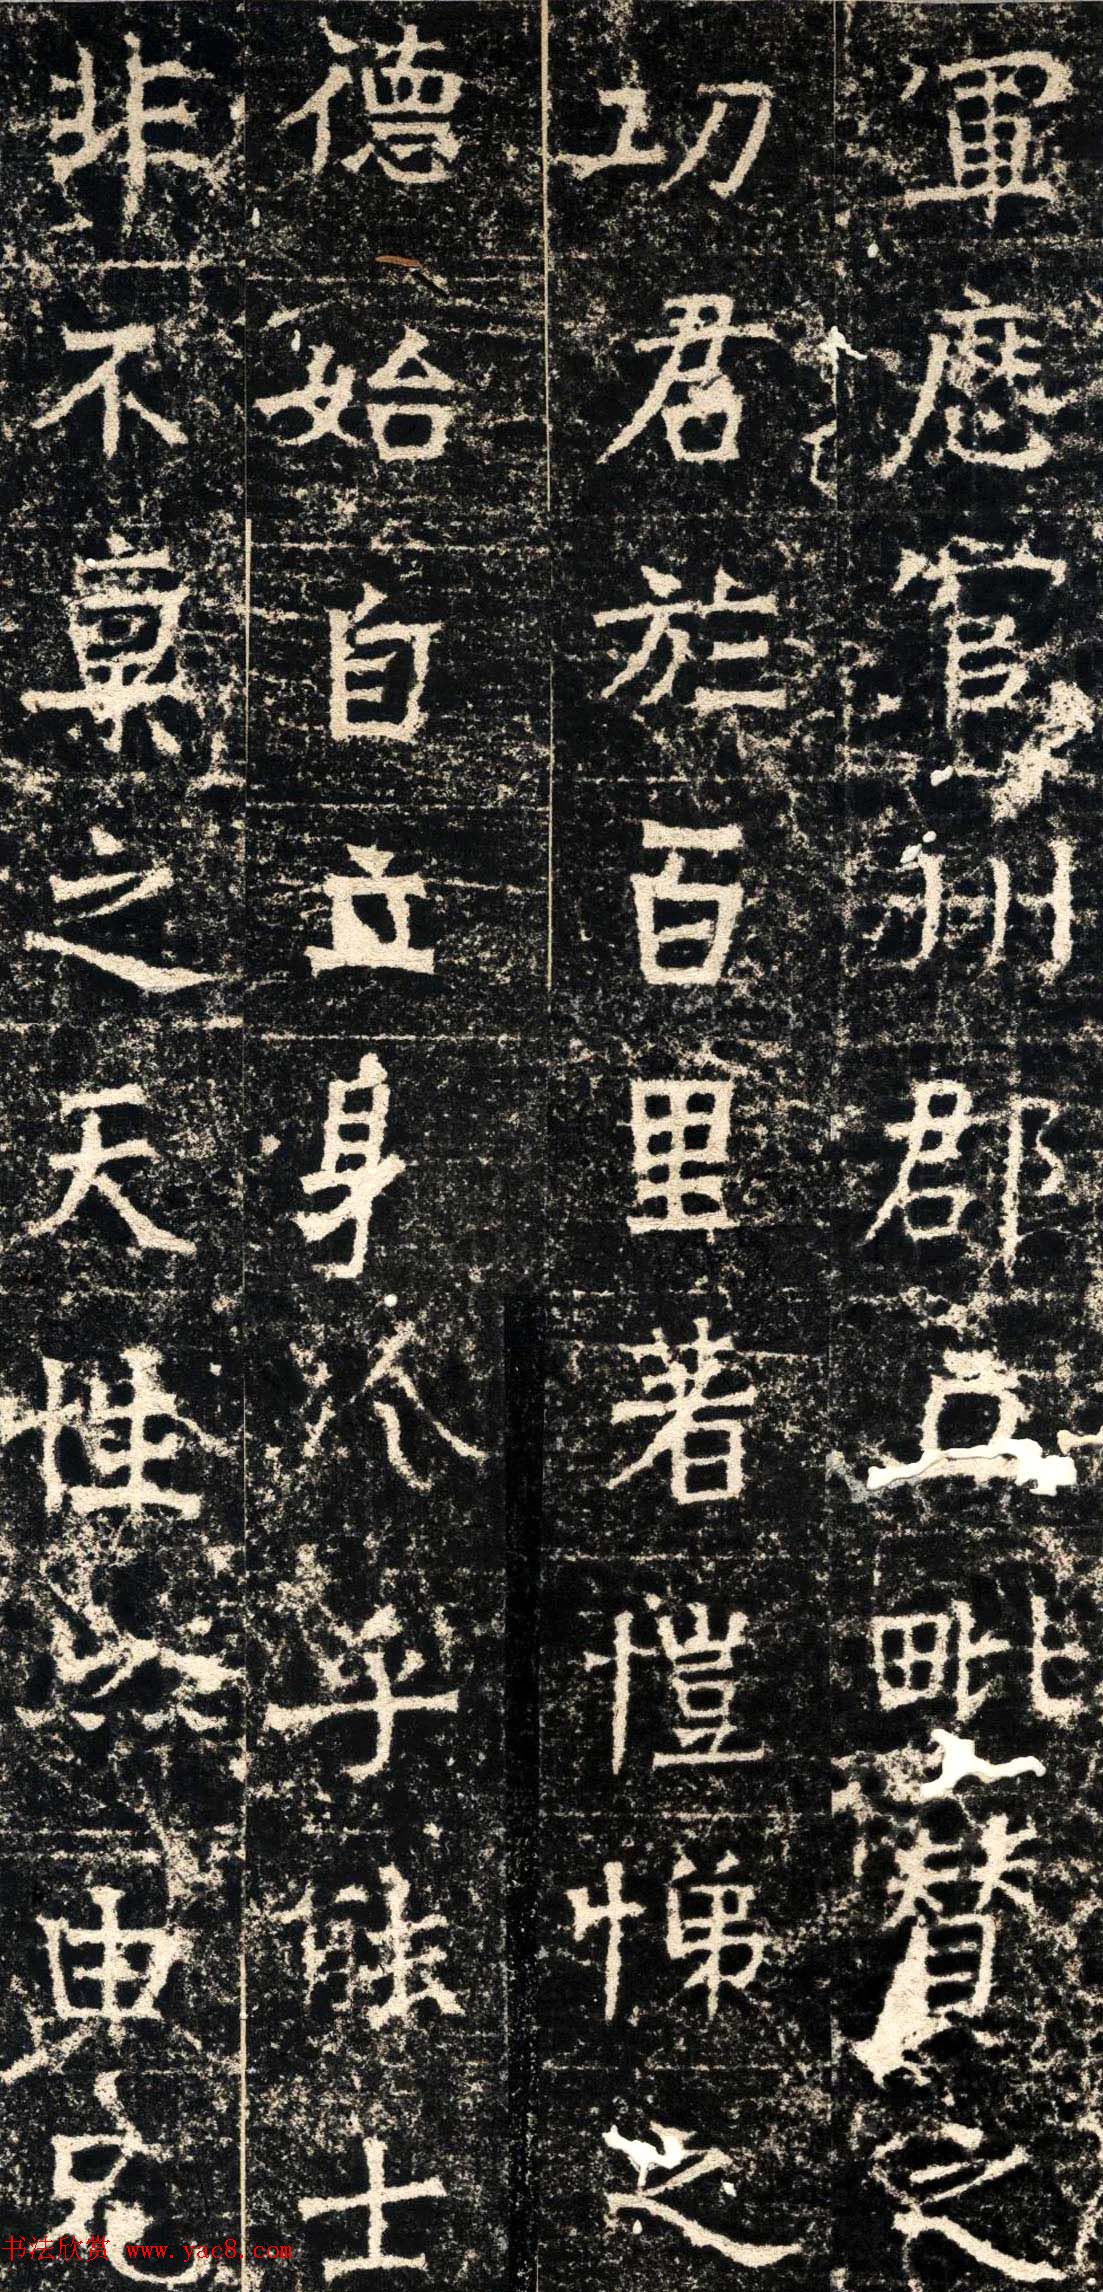 軍歷官州郡立毗賛之
功君於百里著愷悌之
德始自立身入乎能士
非不稟之天性然由兄
书法欣赏 www.yac8.com